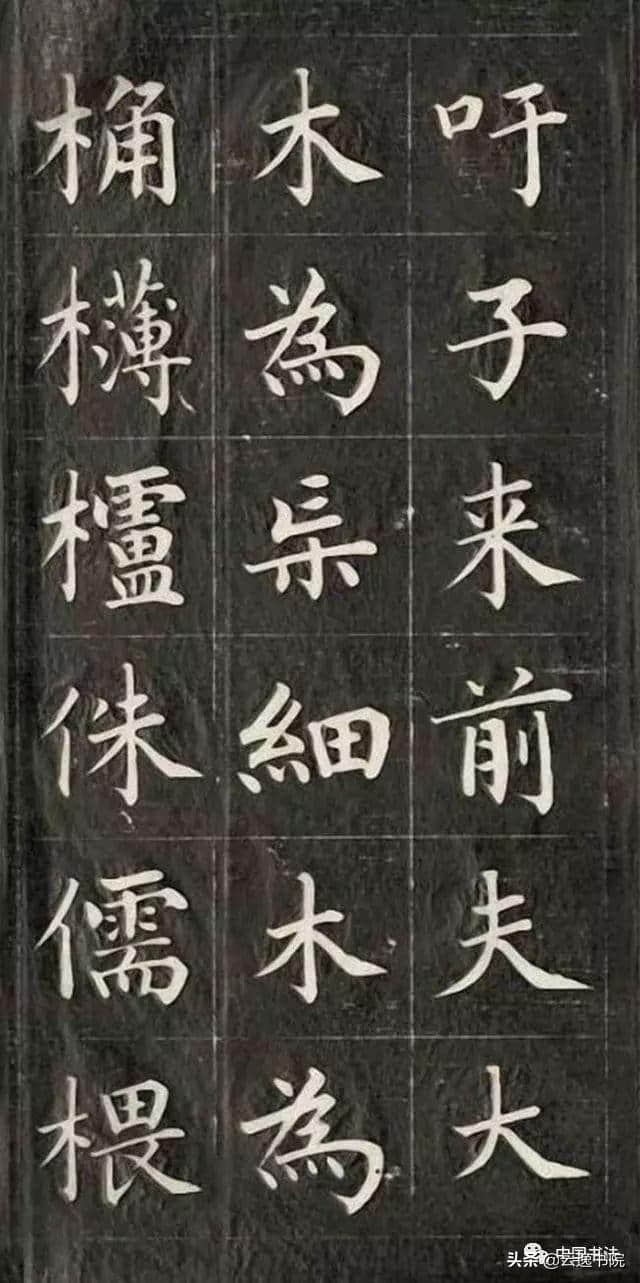 吁子来前夫大
木為杗細木為
桷欂櫨侏儒椳
中国书法
头条@云逸书院